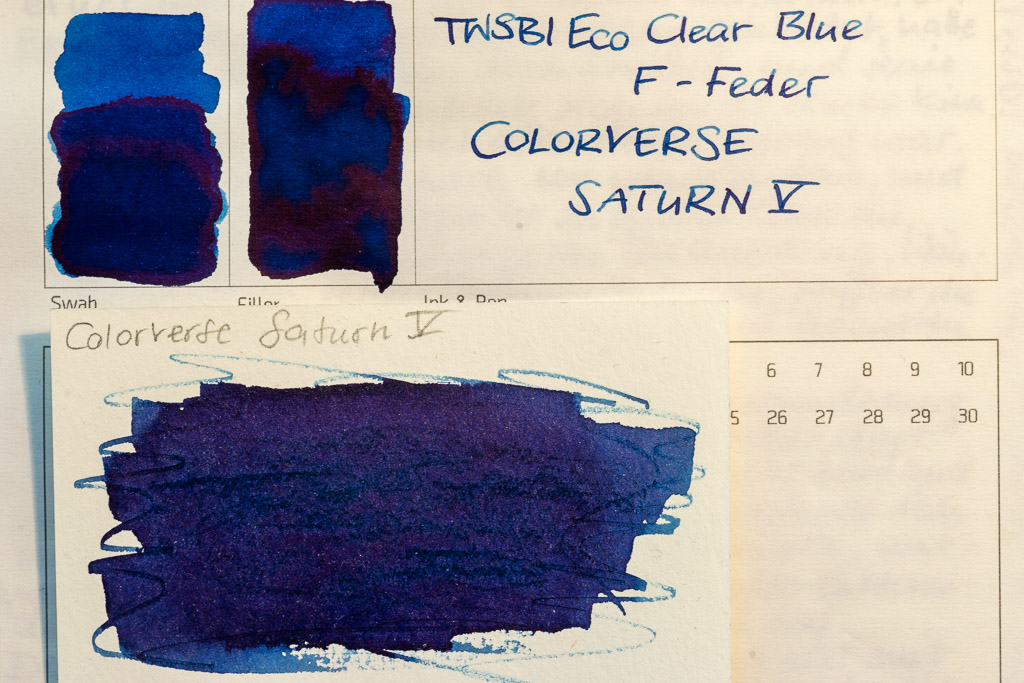 TWSBI Eco Clear Blue
F - Feder
COLORVERSE
SATURN V
Swab Filler Ink & Pen
Colorverse Saturn V
6 7 8 9 10
5 26 27 28 29 30